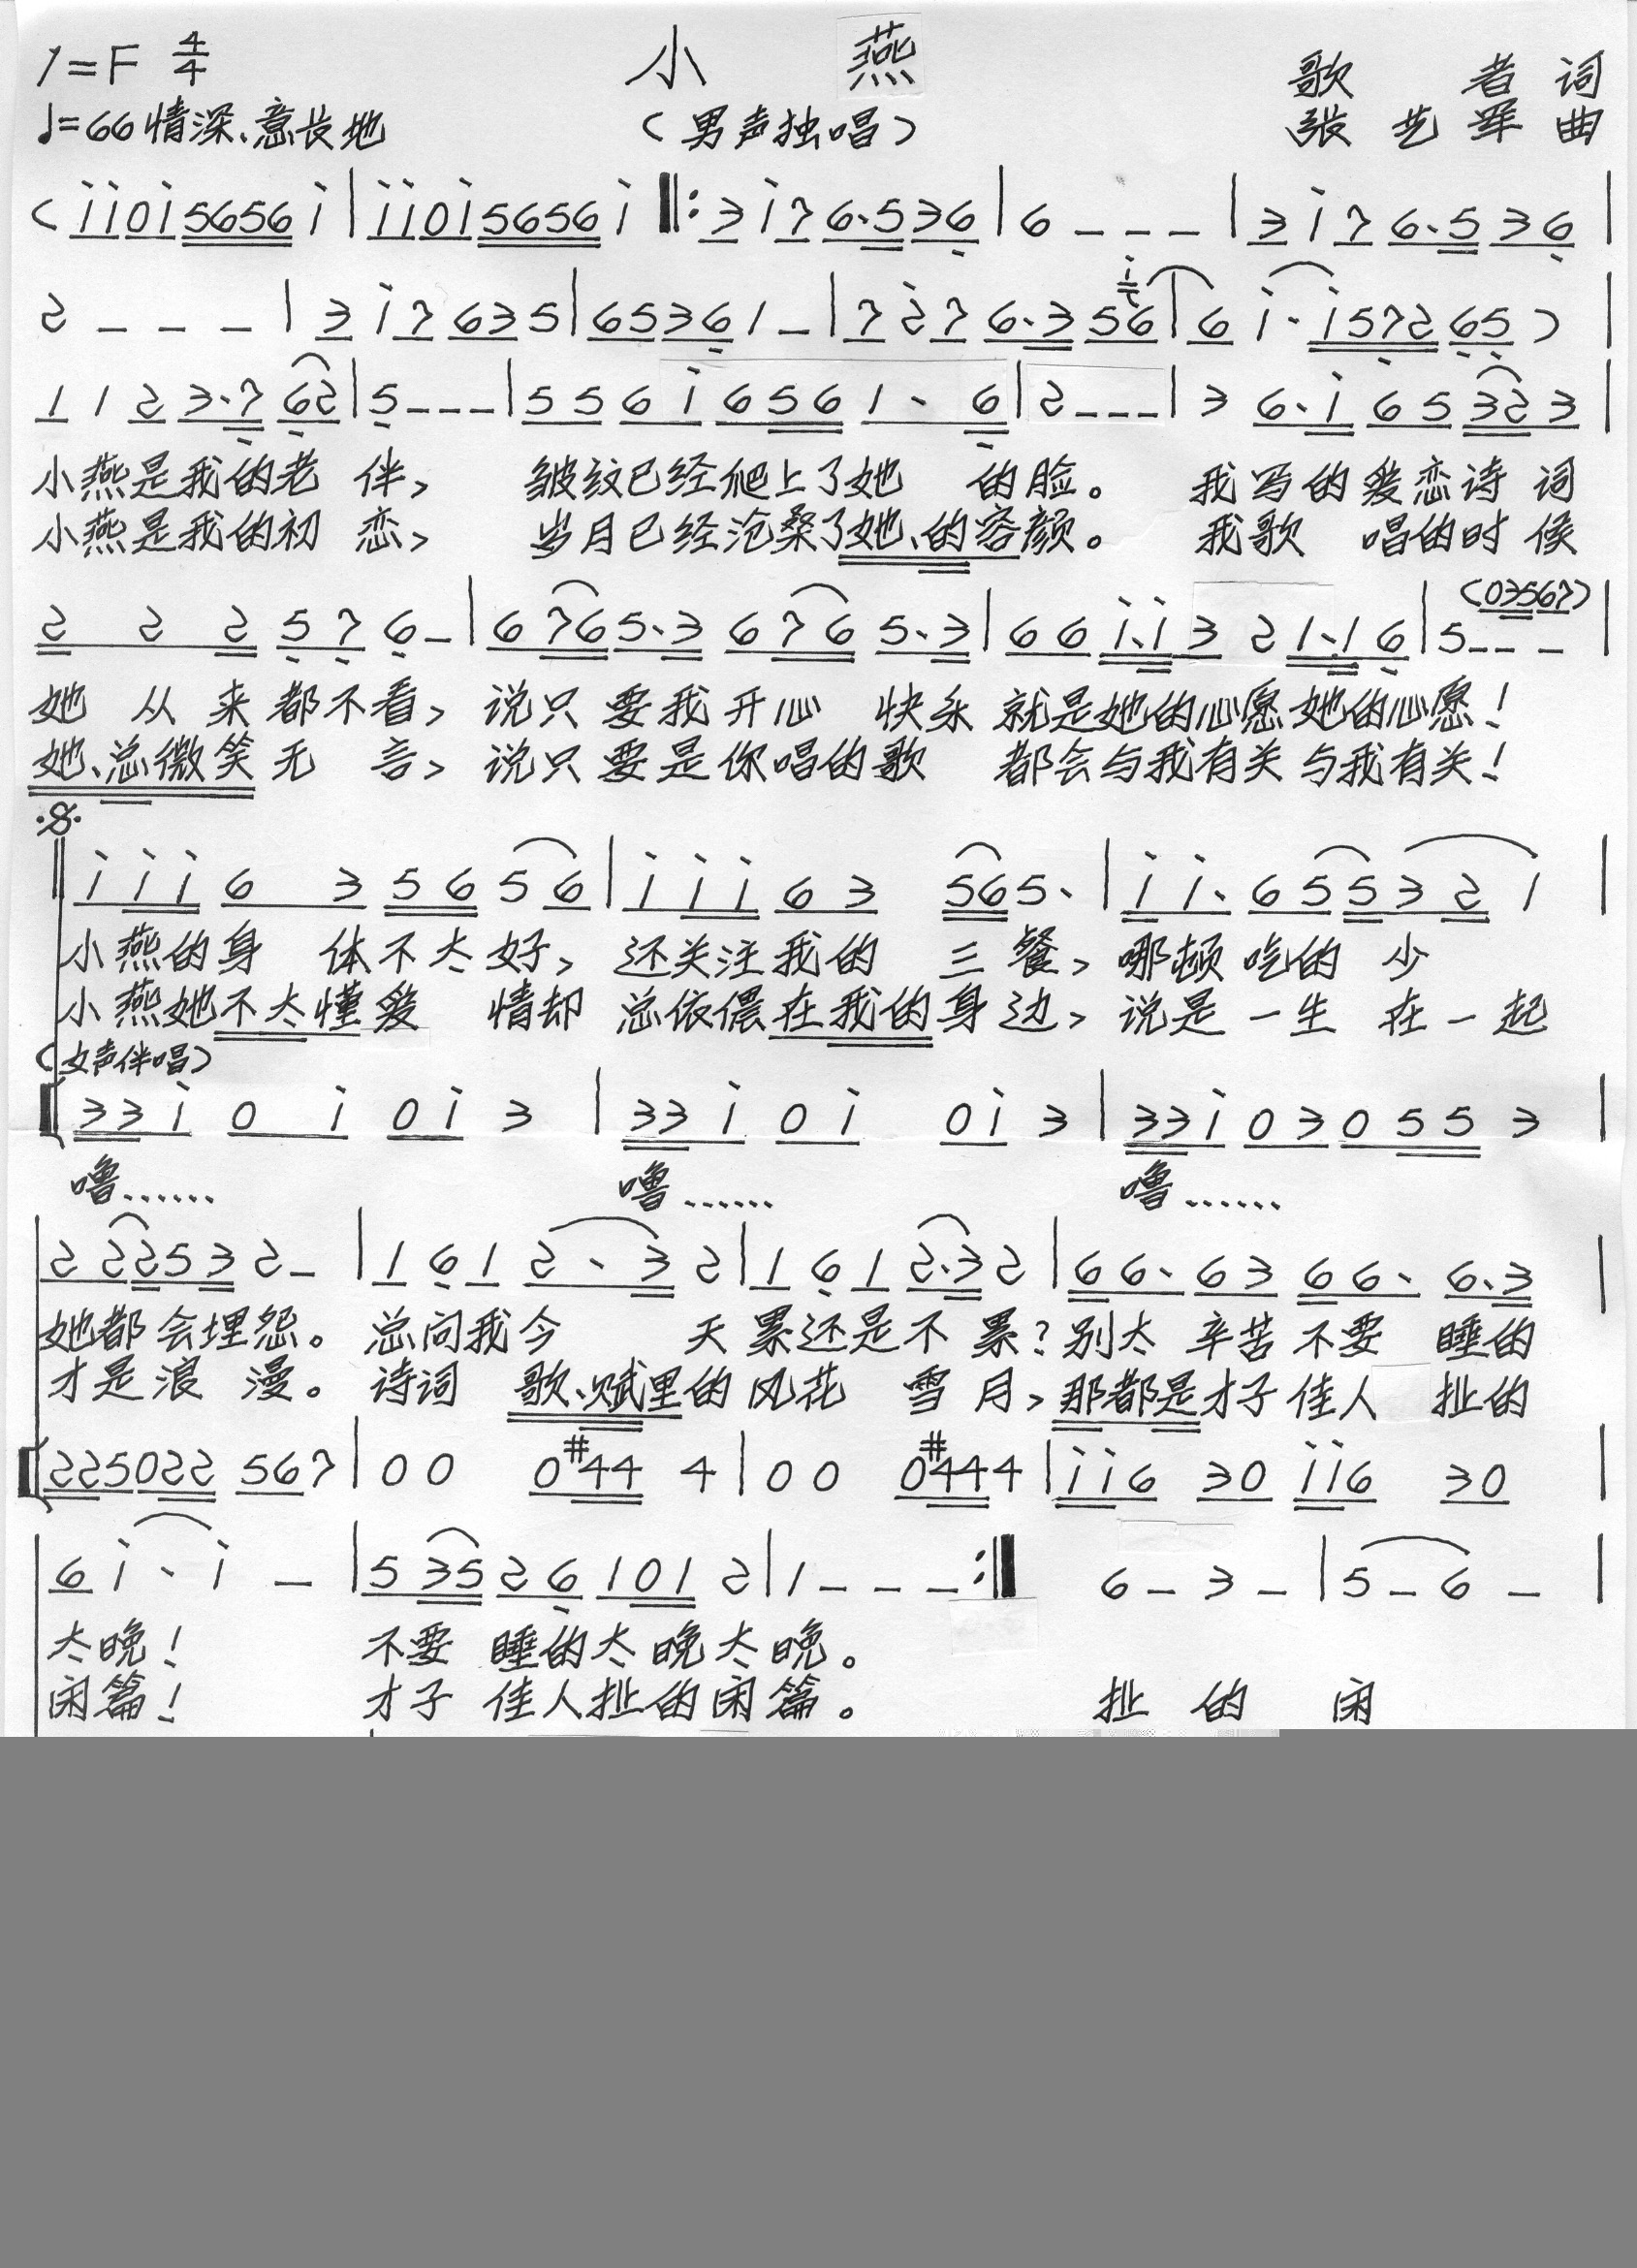 1=F 4/4 小 燕 歌 者 词
♩=66 情深、意长地 （男声独唱） 张 艺 军 曲
( i i 0 i 5 6 5 6 i | i i 0 i 5 6 5 6 i ‖: 3 i 7 6·5 3 6 | 6 - - - | 3 i 7 6·5 3 6 |
2 - - - | 3 i 7 6 3 5 | 6 5 3 6 1 - | 7 2 7 6·3 5 6 | 6 i· i 5 7 2 6 5 ) |
1 1 2 3·7 6 2 | 5 - - - | 5 5 6 i 6 5 6 1· 6 | 2 - - - | 3 6·i 6 5 3 2 3 |
小燕是我的老 伴, 皱纹已经爬上了她 的脸。 我写的爱恋诗 词
小燕是我的初 恋, 岁月已经沧桑了她、的容颜。 我歌 唱的时 候
2 2 2 5 7 6 - | 6 7 6 5·3 6 7 6 5·3 | 6 6 i·i 3 2 1·1 6 | 5 - - - (03567) |
她 从 来 都不看, 说只 要我开心 快乐 就是她的心愿她的心愿!
她、总微笑 无 言, 说只 要是你唱的歌 都会与我有关与我有关!
i i i 6 3 5 6 5 6 | i i i 6 3 5 6 5· | i i· 6 5 5 3 2 1 |
小燕的身 体不太好, 还关注我的 三餐, 哪顿吃的 少
小燕她不太懂爱 情却 总依偎在我的身边, 说是 一生 在一起
（女声伴唱）
3 3 i 0 i 0 i 3 | 3 3 i 0 i 0 i 3 | 3 3 i 0 3 0 5 5 3 |
噜…… 噜…… 噜……
2 2 2 5 3 2 - | 1 6 1 2· 3 2 | 1 6 1 2·3 2 | 6 6· 6 3 6 6· 6·3 |
她都会埋怨。 总问我今 天累还是不 累?别太 辛苦不要 睡的
才是浪 漫。 诗词 歌、赋里的风花 雪 月, 那都是才子佳人 扯的
2 2 5 0 2 2 5 6 7 | 0 0 0 #4 4 4 | 0 0 0 #4 4 4 | i i 6 3 0 i i 6 3 0 |
6 i· i - | 5 3 5 2 6 1 0 1 2 | 1 - - - :‖ 6 - 3 - | 5 - 6 - |
太晚! 不要 睡的太晚太晚。
闲篇! 才子 佳人扯的闲篇。 扯 的 闲